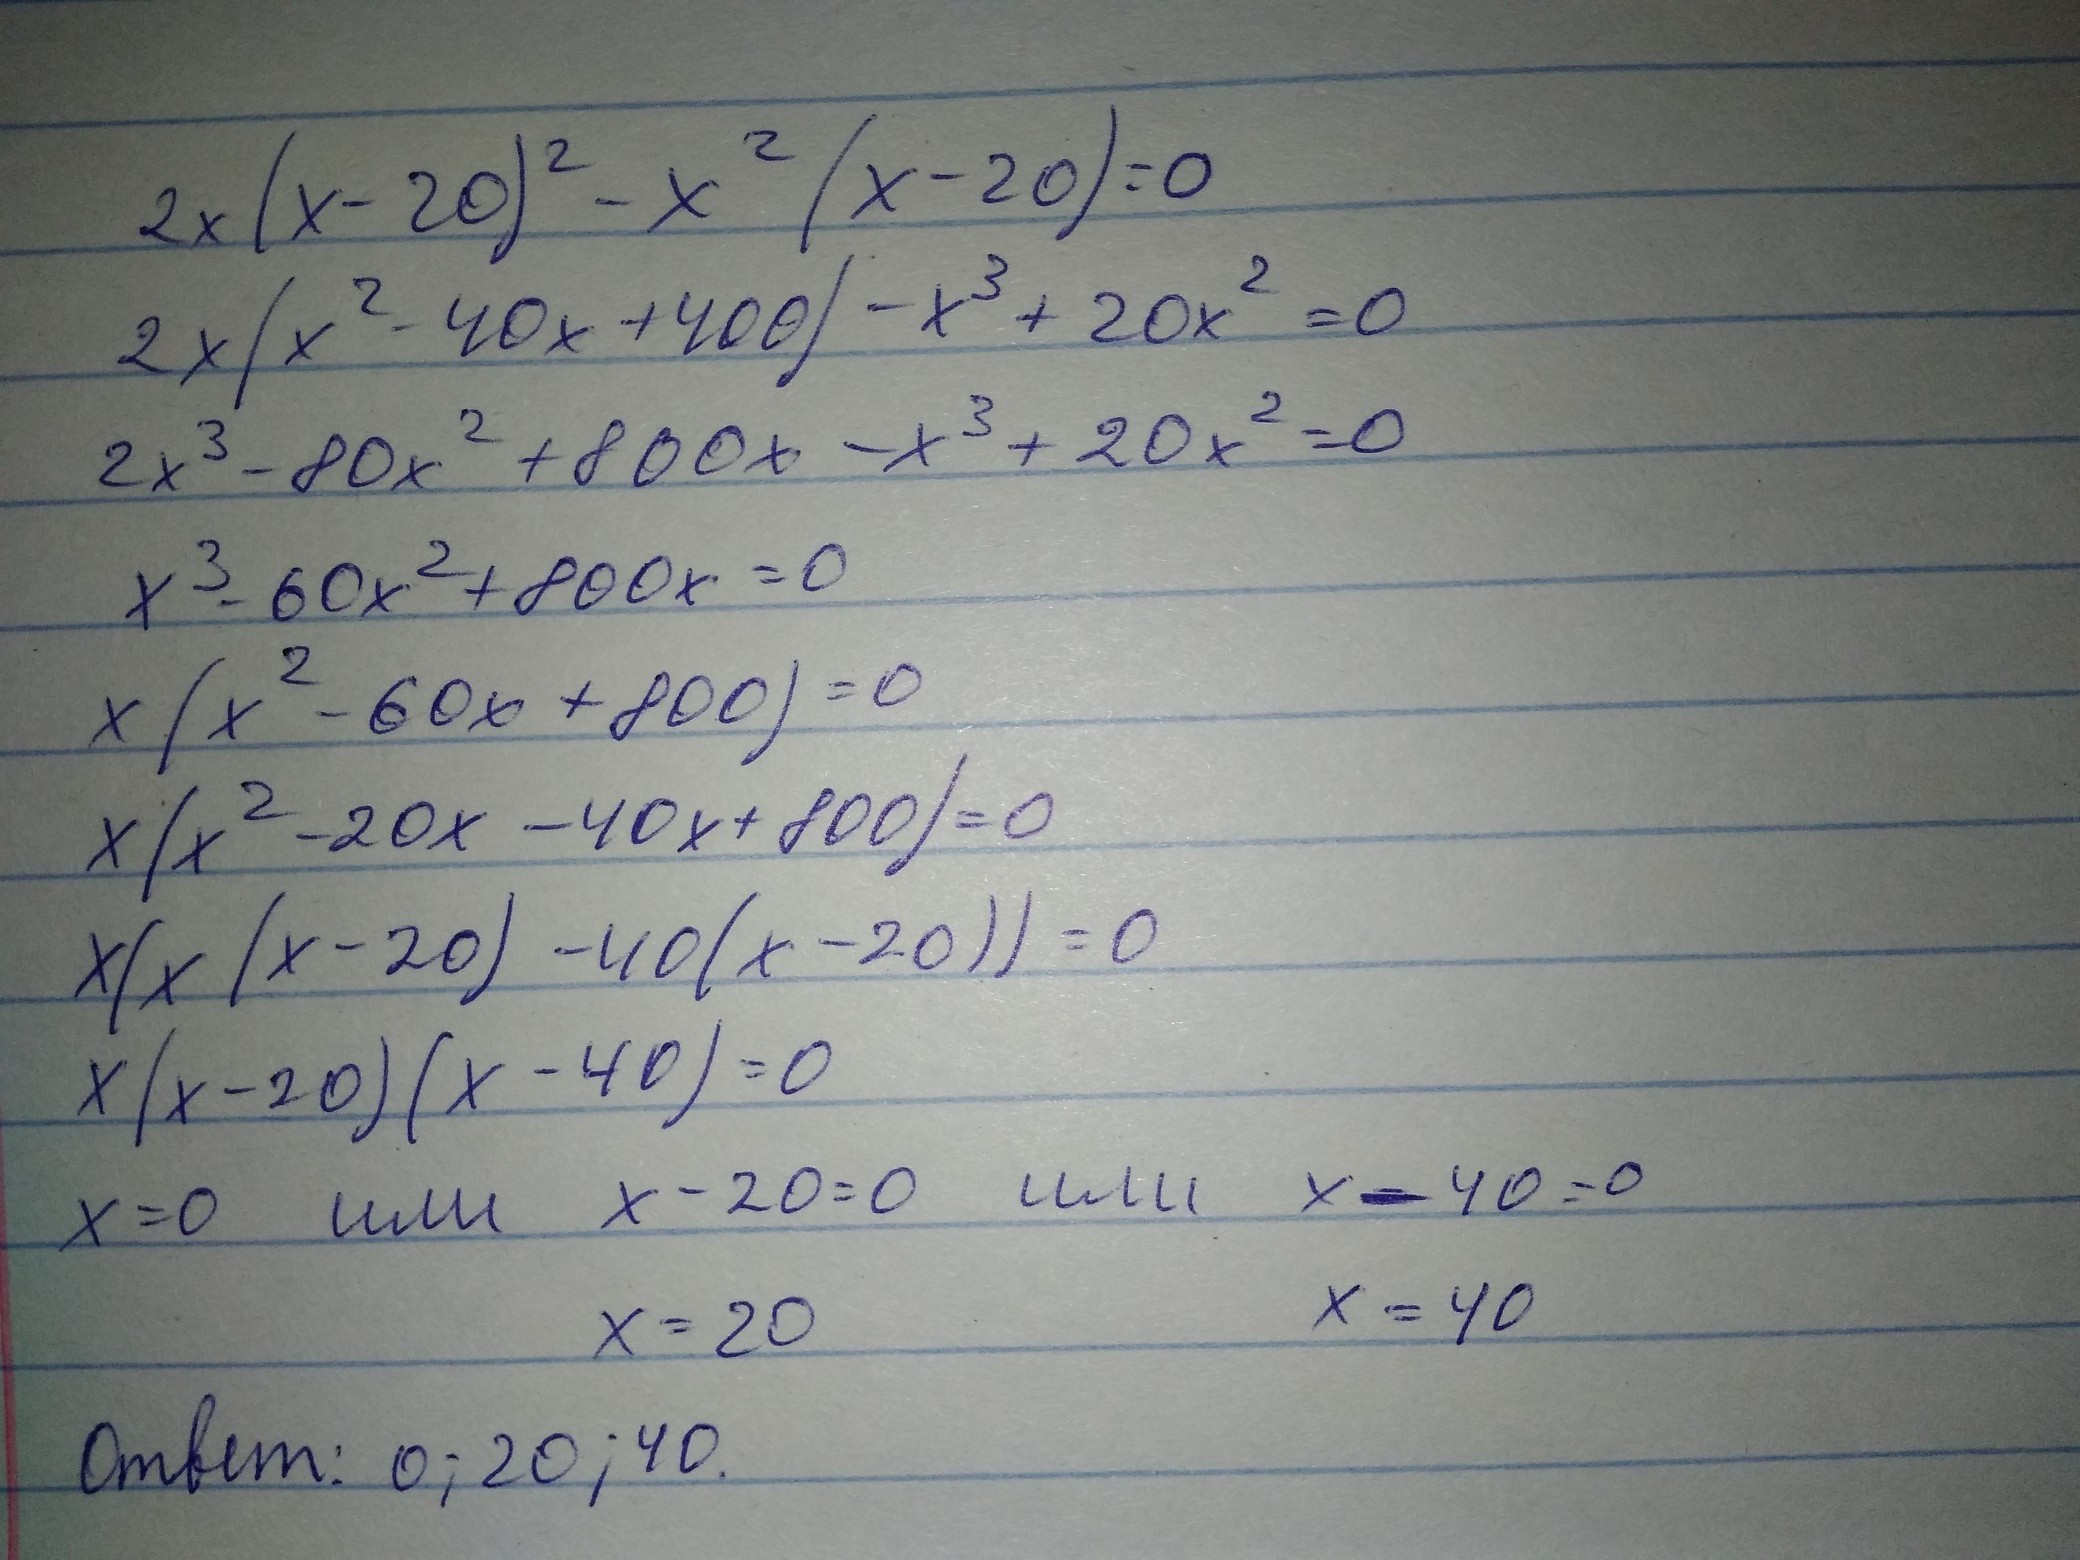 2x(x-20)²-x²(x-20)=0
2x(x²-40x+400)-x³+20x²=0
2x³-80x²+800x-x³+20x²=0
x³-60x²+800x=0
x(x²-60x+800)=0
x(x²-20x-40x+800)=0
x(x(x-20)-40(x-20))=0
x(x-20)(x-40)=0
x=0 или x-20=0 или x-40=0
x=20 x=40
Ответ: 0; 20; 40.